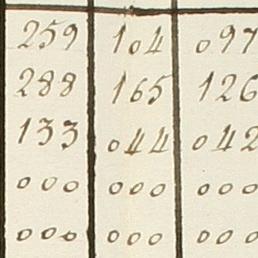 259 104 097
288 165 126
133 044 042
000 000 000
000 000 000